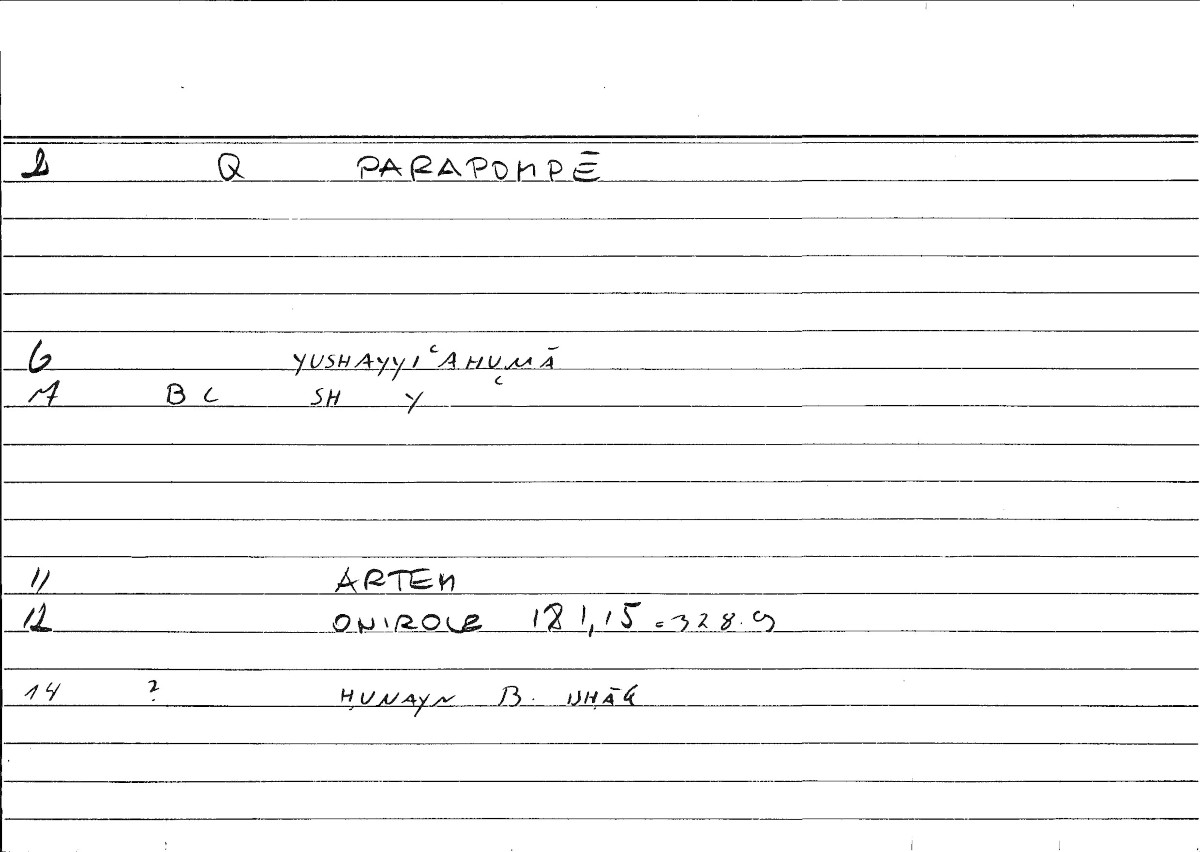 2 Q PARAPOMPĒ
6 YUSHAYYIʿAHUMĀ
7 BC SH Y
11 ARTEM
12 ONIROLE 181,15 = 328.9
14 ? ḤUNAYN B. ISḤĀQ